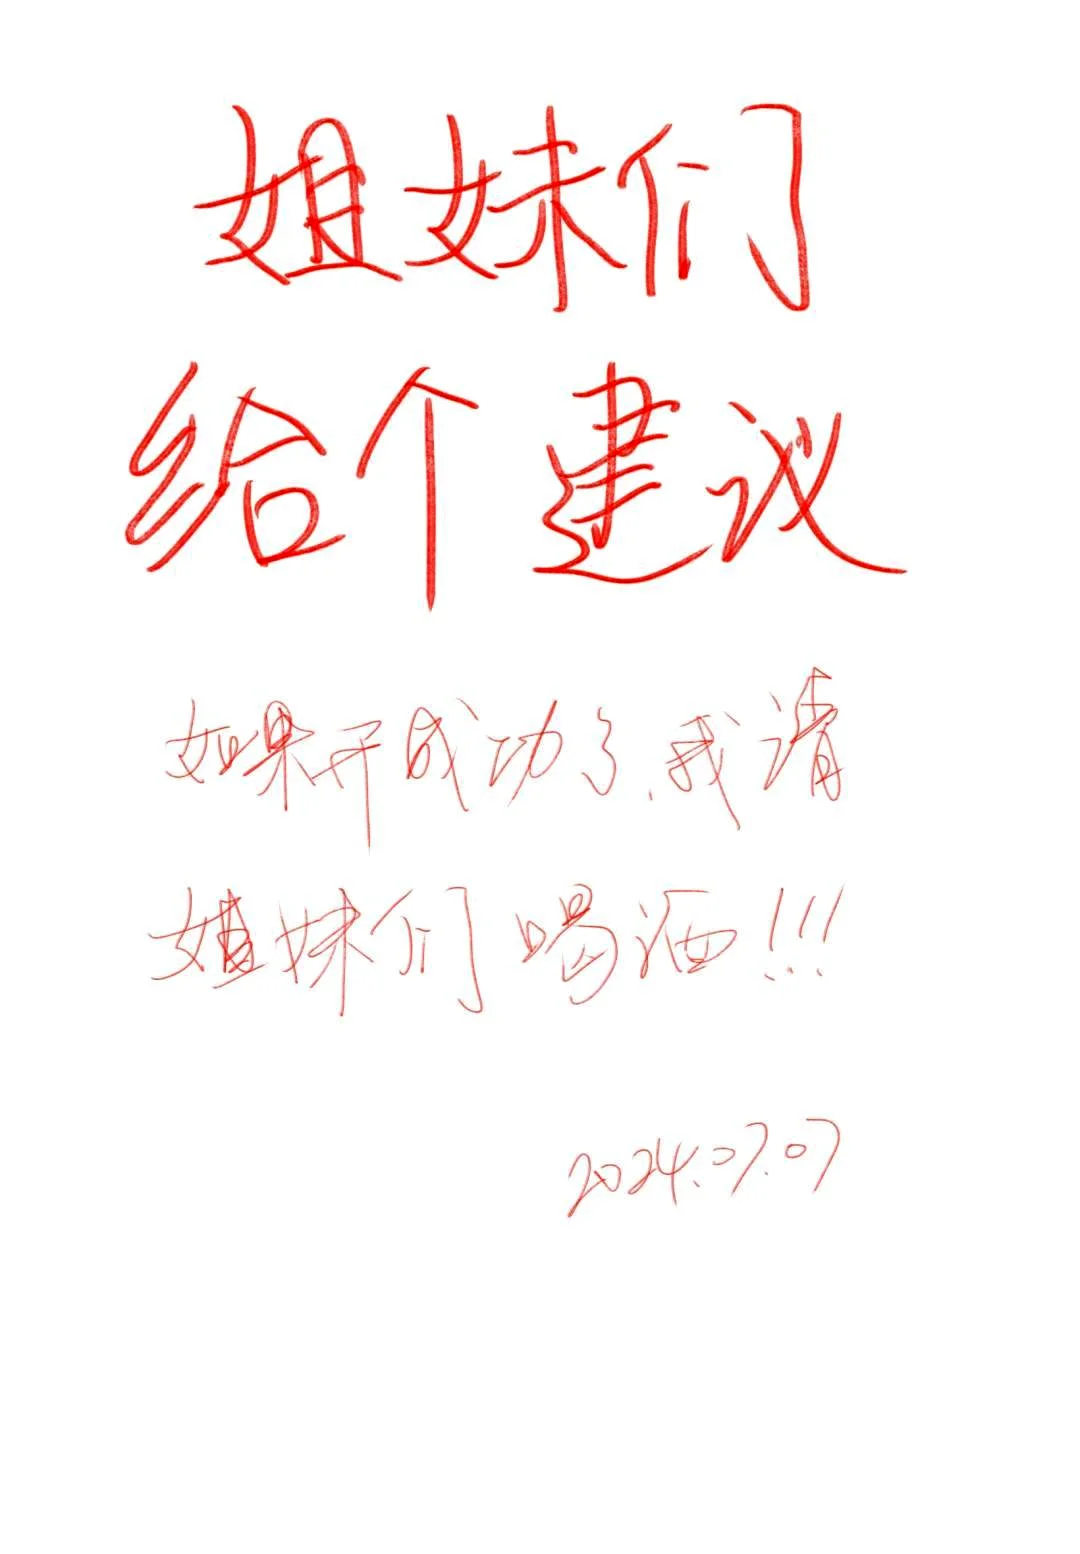 姐妹们
给个建议
如果开成功了,我请
姐妹们喝酒!!!
2024.07.07